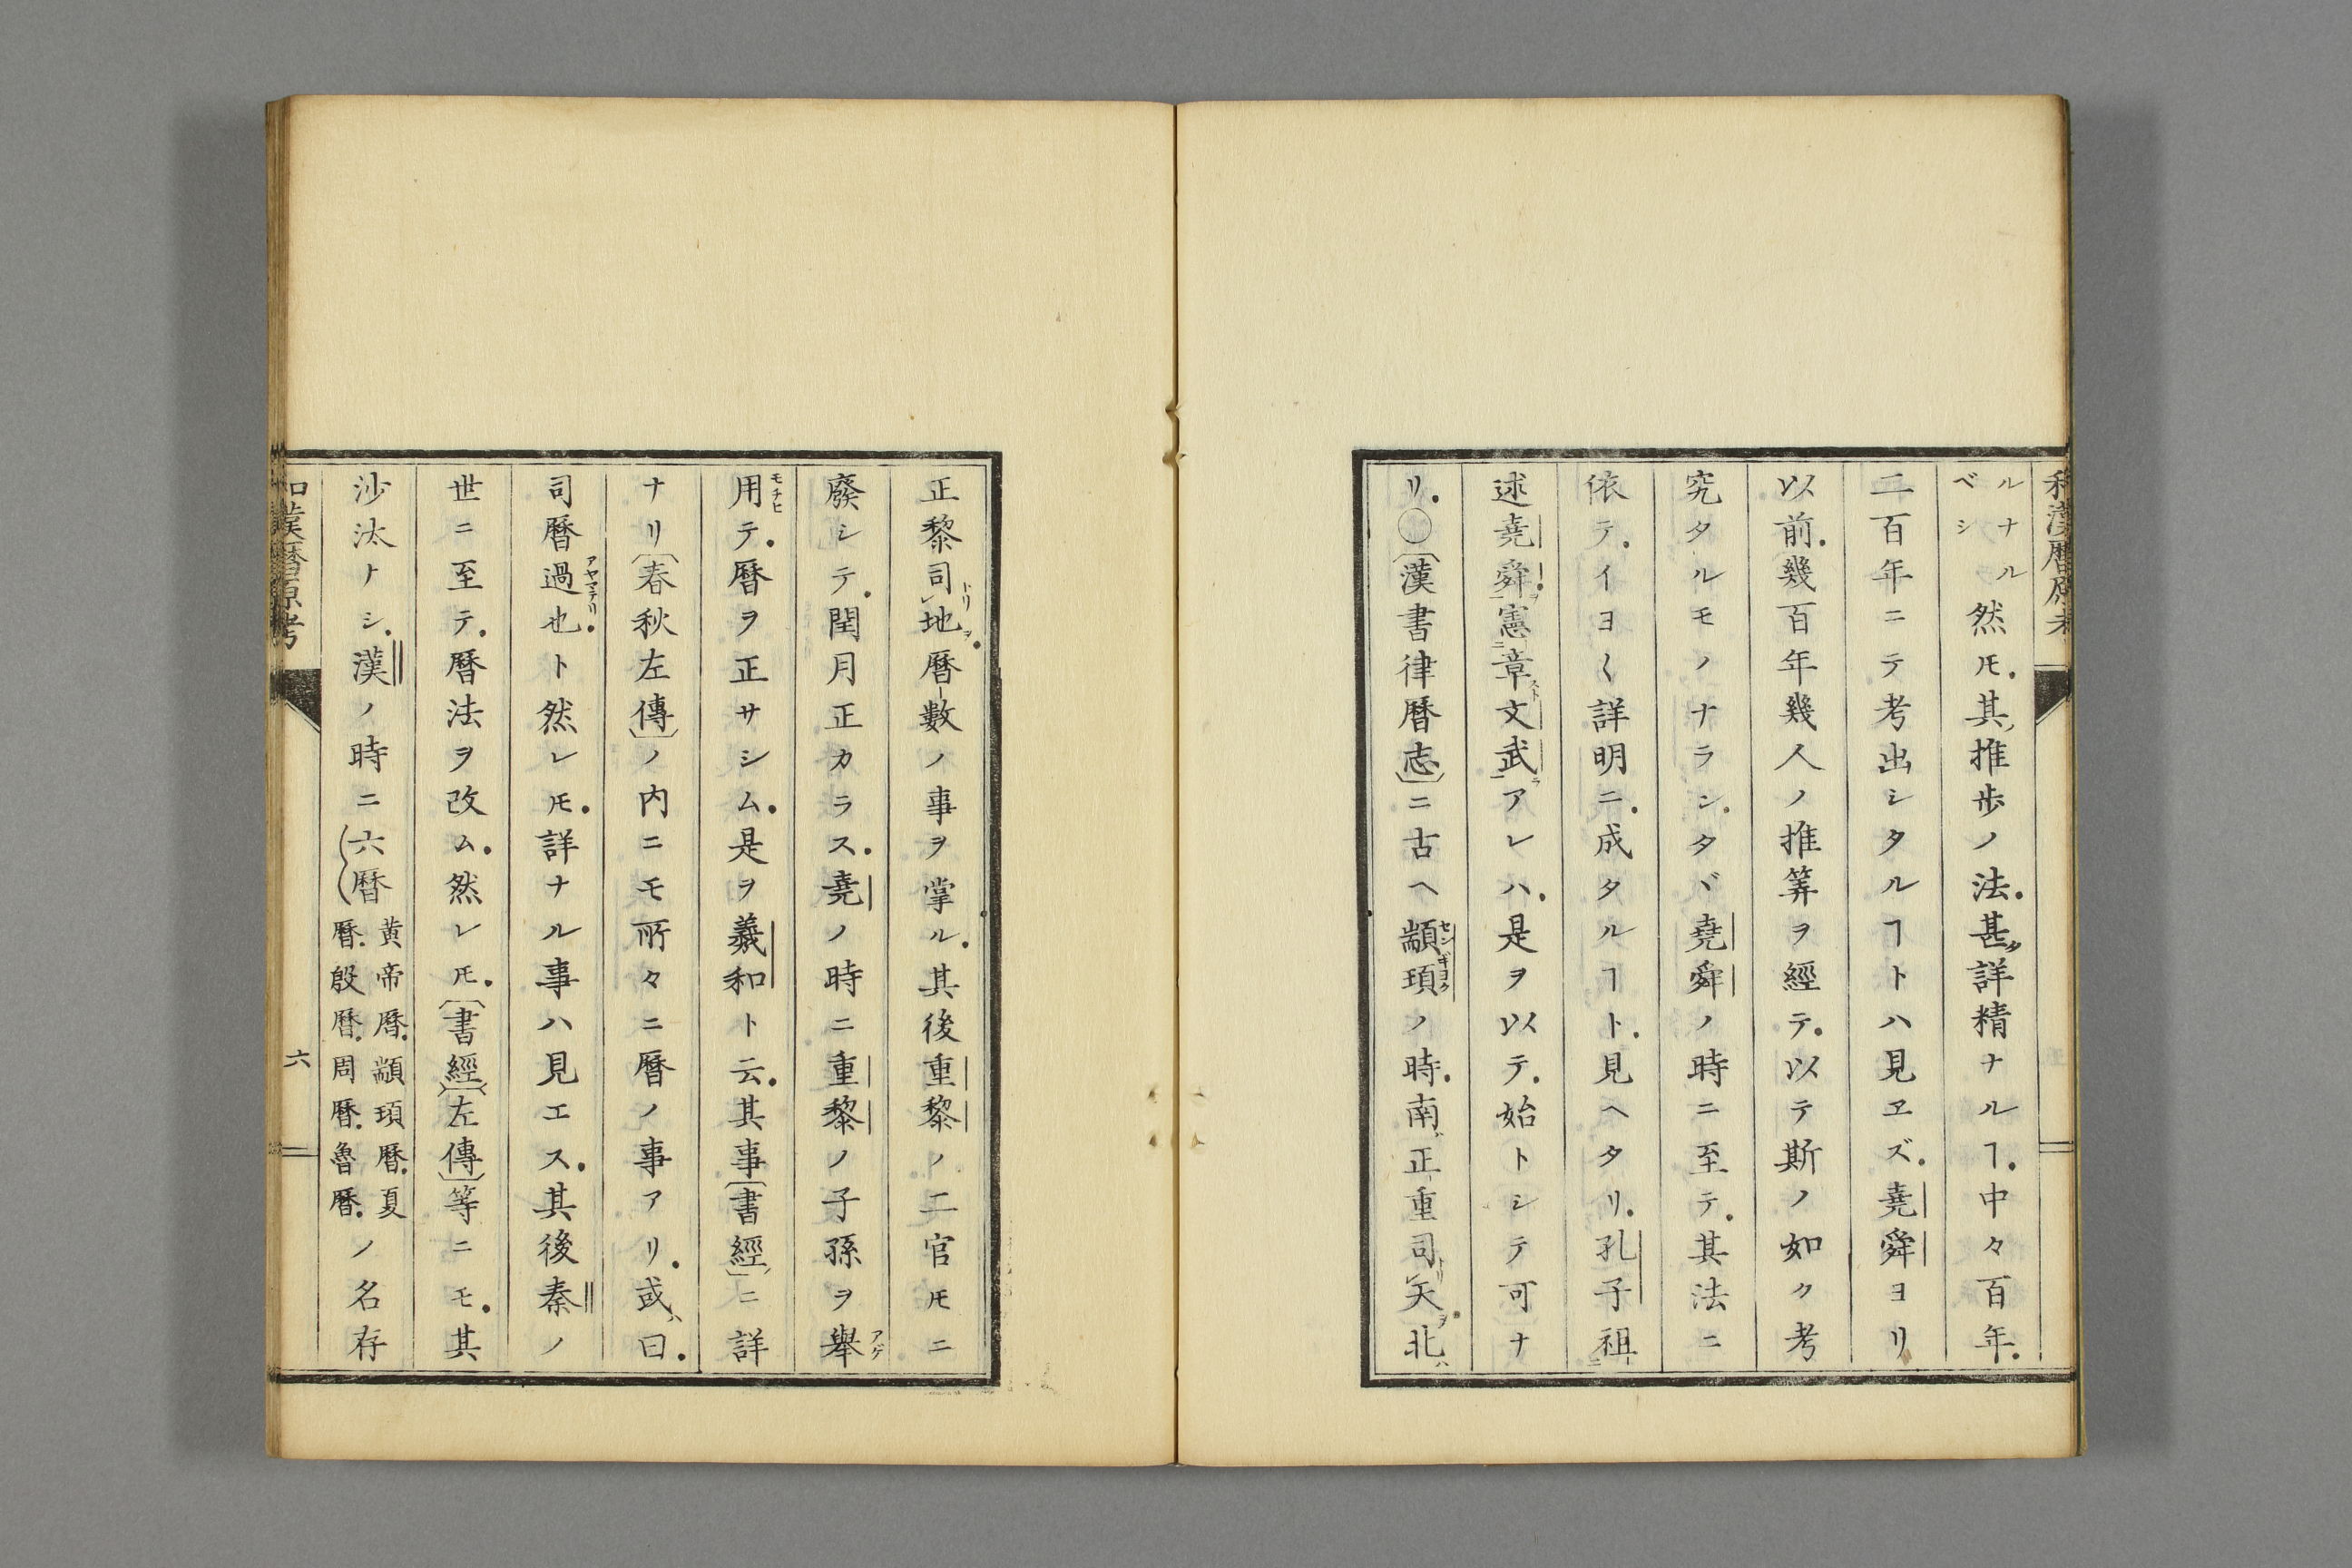 和漢暦原考
ルナル
ベシ
然𪜈其推歩ノ法甚詳精ナルヿ中々百年
二百年ニテ考出シタルヿトハ見ヱズ堯舜ヨリ
以前幾百年幾人ノ推筭ヲ經テ以テ斯ノ如ク考
究タルモノナランタヾ堯舜ノ時ニ至テ其法ニ
依テイヨ〱詳明ニ成タルヿト見ヘタリ孔子祖
述堯舜憲章文武アレハ是ヲ以テ始トシテ可ナ
リ○漢書律暦志ニ古ヘ顓頊ノ時南正重司天北
正黎司地暦數ノ事ヲ掌ル其後重黎ノ二官𪜈ニ
廢シテ閏月正カラス堯ノ時ニ重黎ノ子孫ヲ舉
用テ暦ヲ正サシム是ヲ羲和ト云其事書經ニ詳
ナリ春秋左傳ノ内ニモ所々ニ暦ノ事アリ或曰
司暦過也ト然レ𪜈詳ナル事ハ見エス其後秦ノ
世ニ至テ暦法ヲ改ム然レ𪜈書經左傳等ニモ其
沙汰ナシ漢ノ時ニ六暦
黄帝暦顓頊暦夏
暦殷暦周暦魯暦
ノ名存
和漢暦原考
六